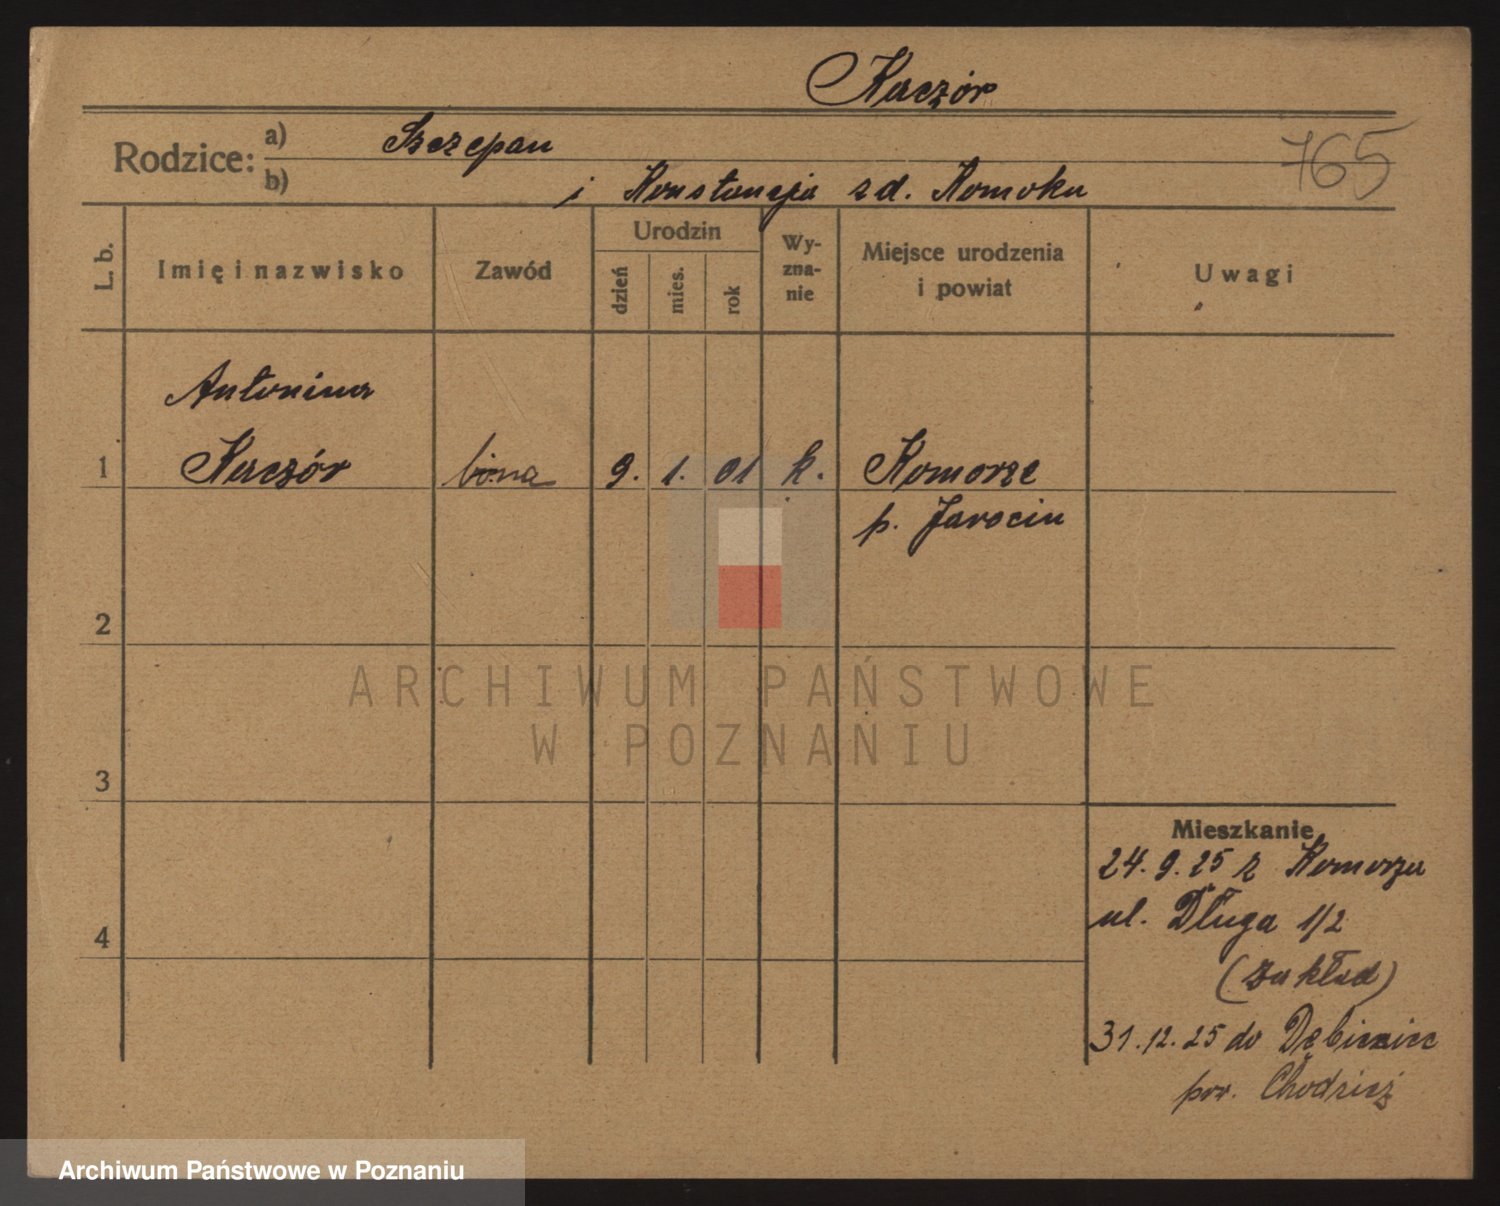 Kaczór
765
Rodzice:
a) Szczepan
b) i Konstancja zd. Nomoka
L. b.
Imię i nazwisko
Zawód
Urodzin
dzień
mies.
rok
Wy-
zna-
nie
Miejsce urodzenia
i powiat
Uwagi
Antonina
1 Kaczór bona 9. 1. 01 k. Komorze
p. Jarocin
2
3
4
Mieszkanie
24.9.25 z Komorza
ul. Długa 1/2
(zakład)
31.12.25 do
pow. Chodzież
ARCHIWUM PAŃSTWOWE
W POZNANIU
Archiwum Państwowe w Poznaniu